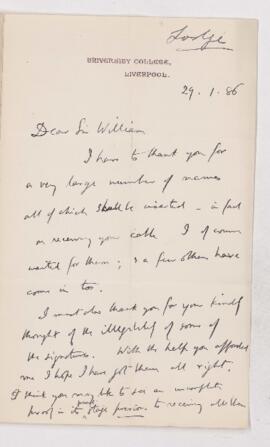 Lodge
UNIVERSITY COLLEGE,
LIVERPOOL.
29.1.86
Dear Sir William
I have to thank you for
a very large number of names
all of which shall be inserted – in fact
on receiving your cable I of course
waited for them; & a few others have
come in too.
I must also thank you for your kindly
thought of the illegibility of some of
the signatures. With the help you afforded
me I hope I have got them all right.
I think you may like to see an incomplete
proof in its early stage previous to receiving all